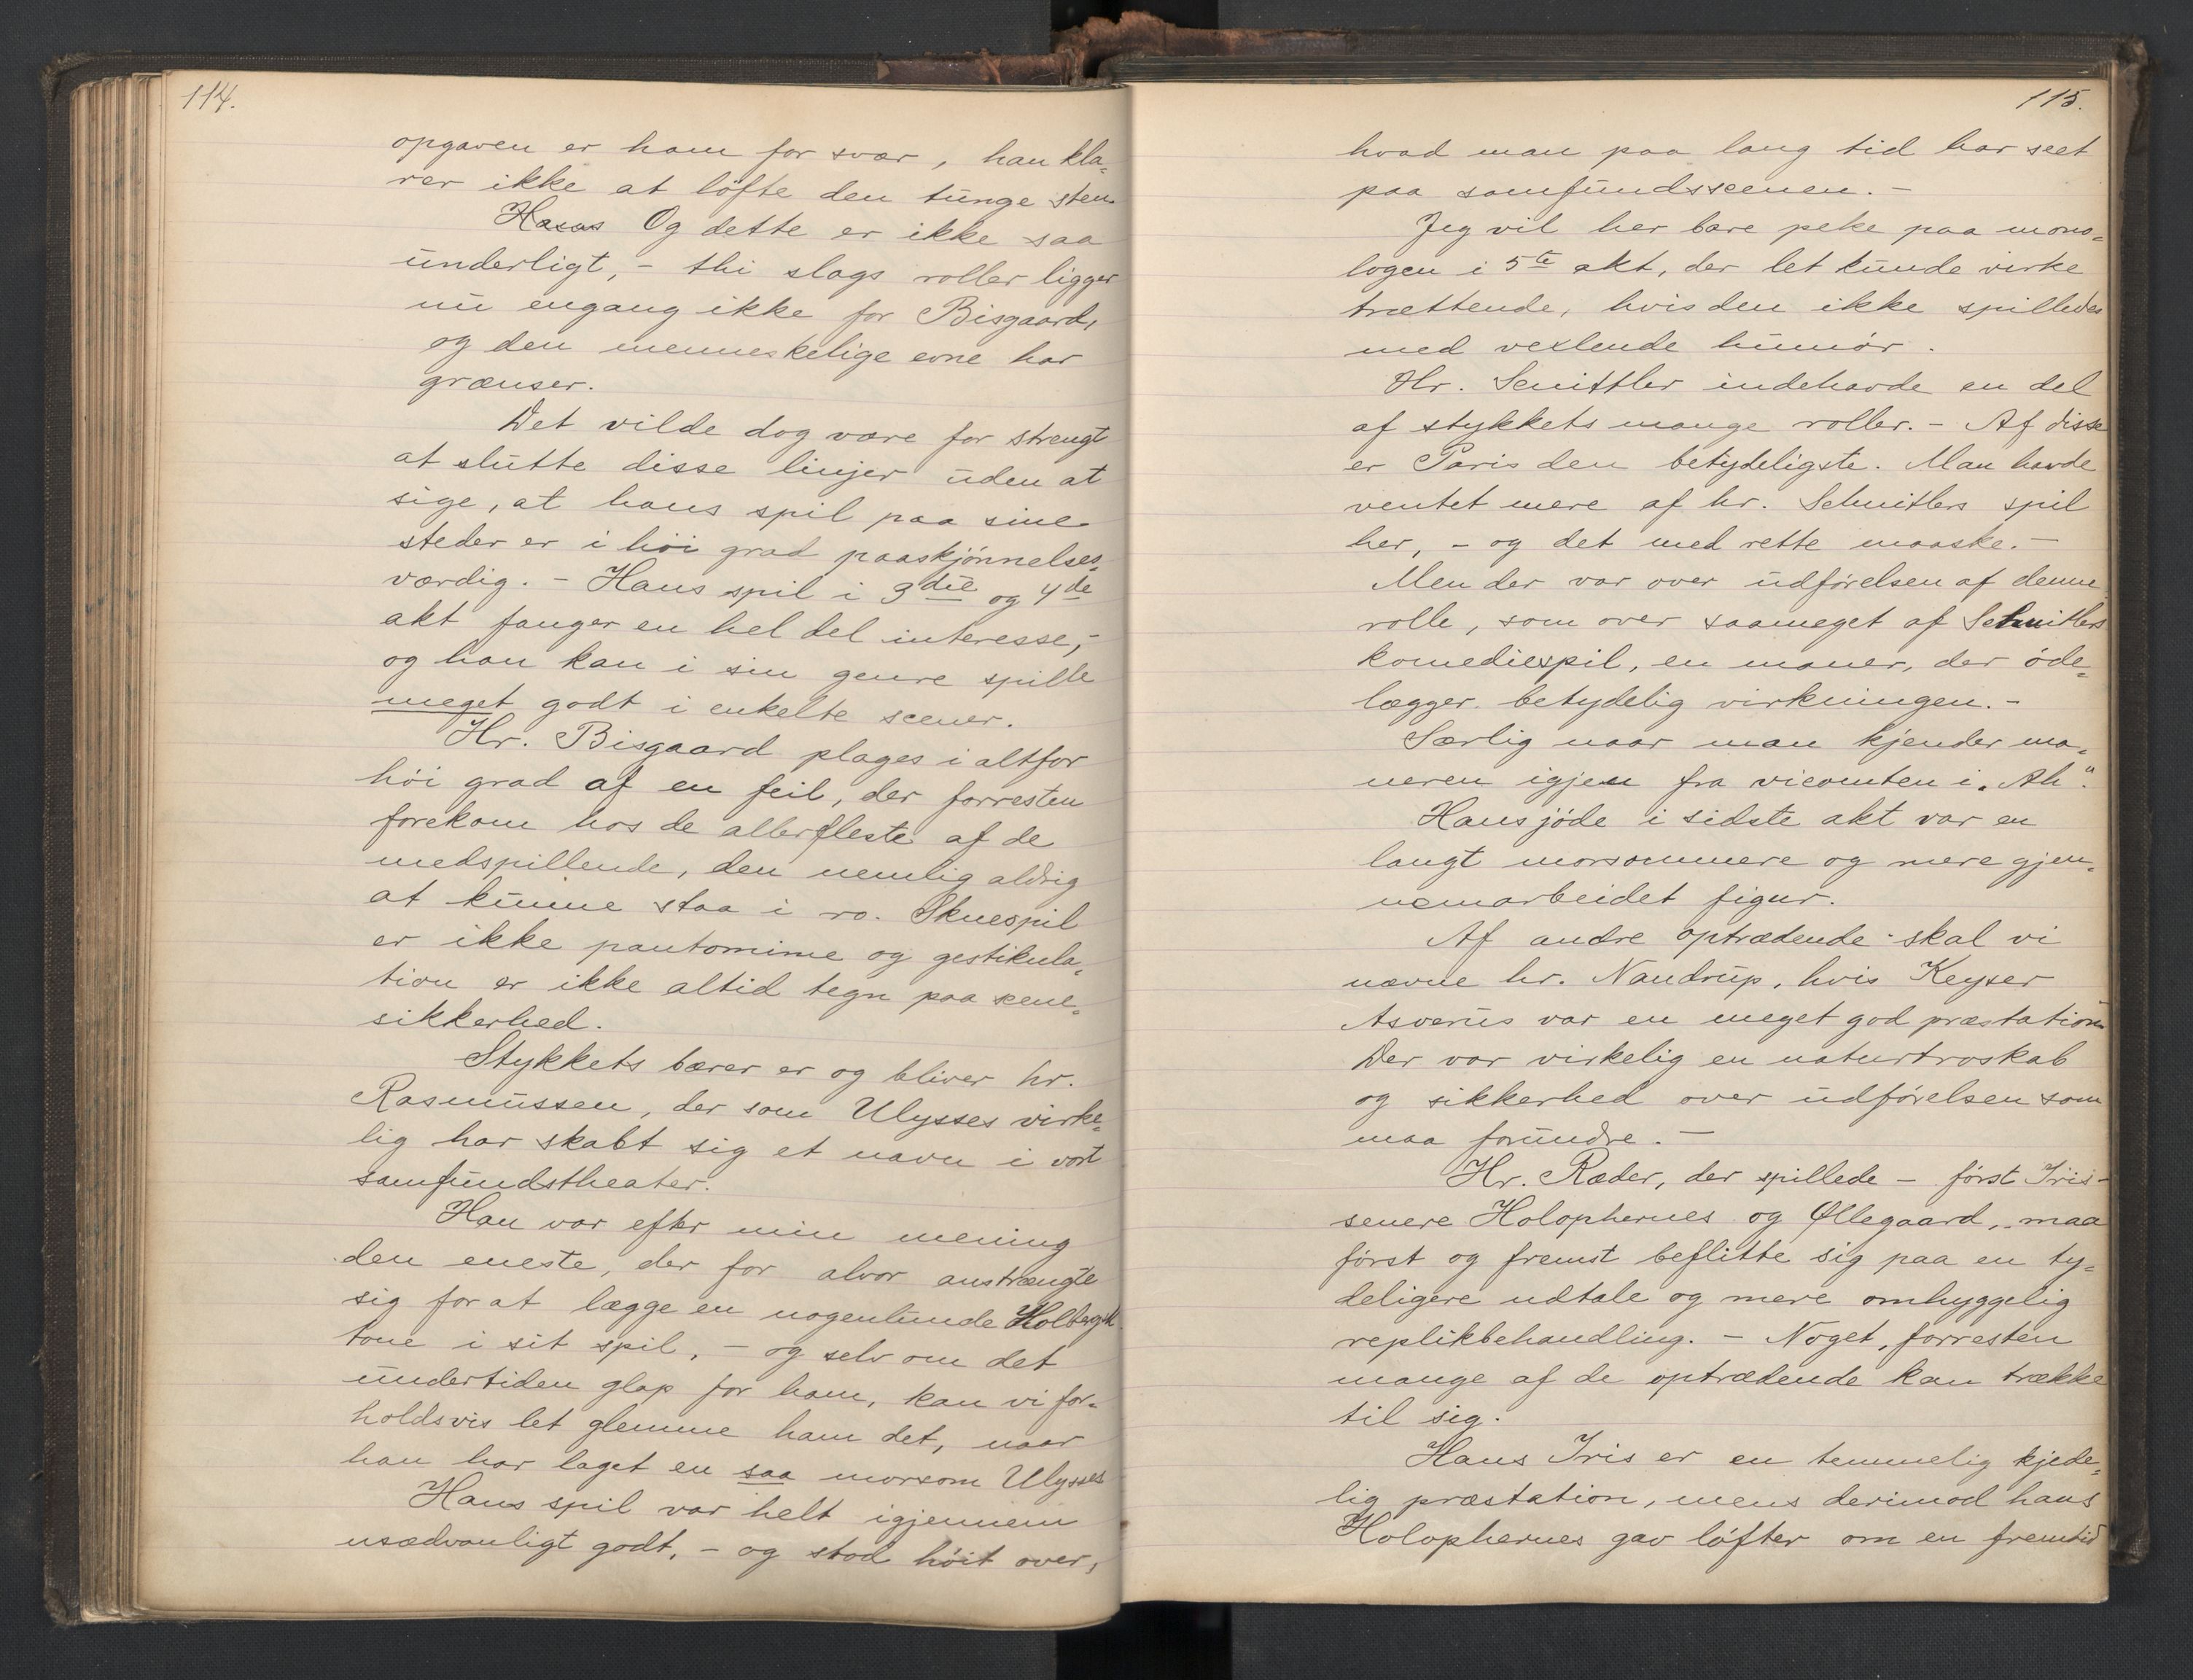 114.
opgaven er ham for svær, han kla=
rer ikke at löfte den tunge sten.
Og dette er ikke saa
underligt, - thi slags roller ligger
nu engang ikke for Bisgaard,
og den menneskelige evne har
grænser.
Det vilde dog være for strengt
at slutte disse linjer uden at
sige, at hans spil paa sine
steder er i höi grad paaskjönnelses=
værdig. - Hans spil i 3die og 4de
akt fanger en hel del interesse, -
og han kan i sin genre spille
meget godt i enkelte scener.
Hr. Bisgaard plages i altfor
höi grad af en feil, der forresten
forekom hos de allerfleste af de
medspillende, den nemlig aldrig
at kunne staa i ro. Skuespil
er ikke pantomime og gestikula=
tion er ikke altid tegn paa scene=
sikkerhed.
Stykkets bærer er og bliver hr.
Rasmussen, der som Ulysses virke=
lig har skabt sig et navn i vort
samfundstheater.
Han var efter min mening
den eneste, der for alvor anstrængte
sig for at lægge en nogenlunde Holbergsk
tone i sit spil, - og selv om det
undertiden glap for ham, kan vi for=
holdsvis let glemme ham det, naar
han har laget en saa morsom Ulysses
Hans spil var helt igjennem
usædvanligt godt, - og stod höit over,
115.
hvad man paa lang tid har seet
paa samfundsscenen. -
Jeg vil her bare peke paa mono=
logen i 5te akt, der let kunde virke
trættende, hvis den ikke spilledes
med vexlende humör.
Hr. Schnittler indehavde en del
af stykkets mange roller. - Af disse
er Paris den betydeligste. Man havde
ventet mere af hr. Schnitlers spil
her, - og det med rette maaske. -
Men der var over udförelsen af denne
rolle, som over saameget af Schnitlers
komediespil, en maner, der öde=
lægger betydelig virkningen. -
Særlig naar man kjender ma=
neren igjen fra vicomten i „Ah".
Hans jöde i sidste akt var en
langt morsommere og mere gjen=
nemarbeidet figur.
Af andre optrædende skal vi
nævne hr. Nandrup, hvis Keyser
Asverus var en meget god præstation
Der var virkelig en naturtroskab
og sikkerhed over udförelsen som
maa forundre. -
Hr. Ræder, der spillede - först Iris -
senere Holophernes og Øllegaard, maa
först og fremst beflitte sig paa en ty=
deligere udtale og mere omhyggelig
replikbehandling. - Noget, forresten
mange af de optrædende kan trække
til sig.
Hans Iris er en temmelig kjede=
lig præstation, mens derimod hans
Holophernes gav löfter om en fremtid